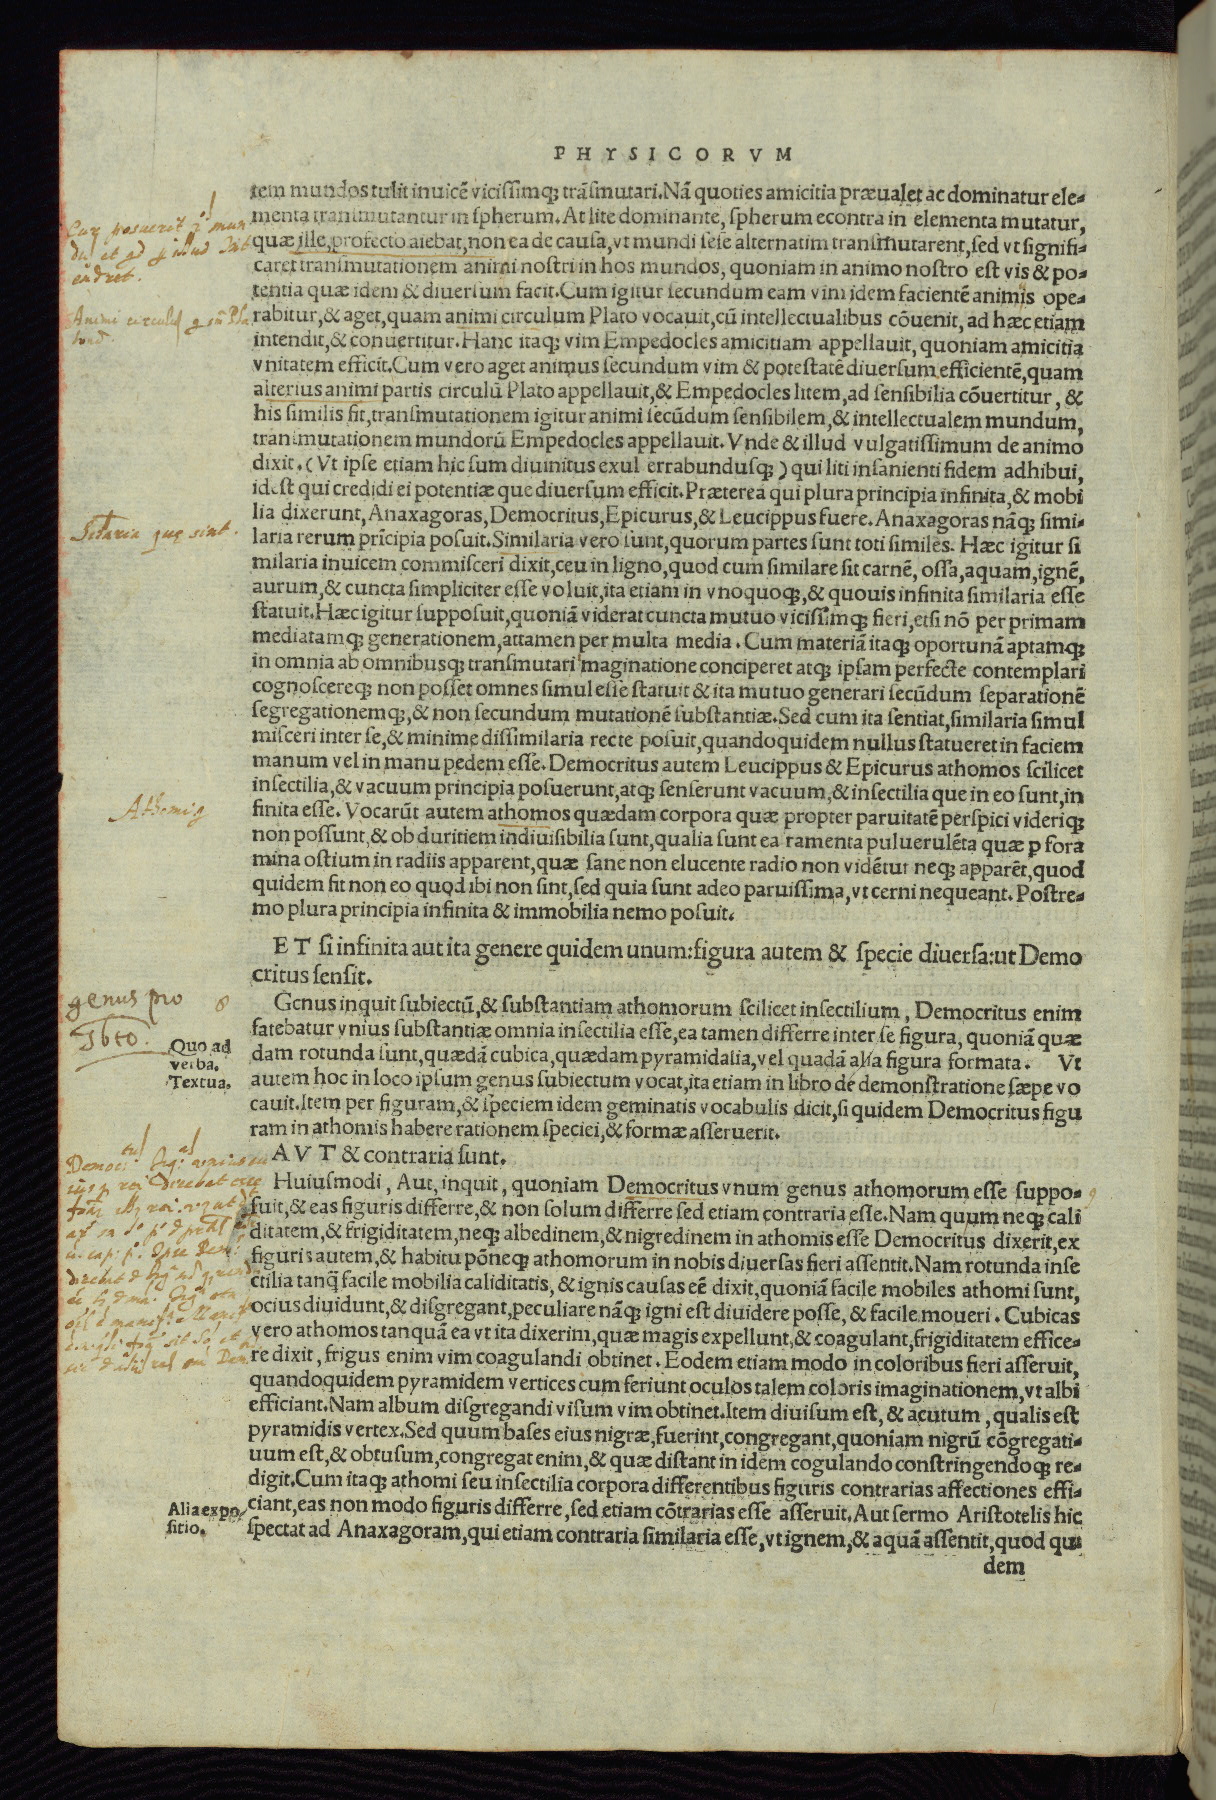 PHYSICORVM
tem mundos tulit inuicē vicissimq; trāsmutari.Nā quoties amicitia præualet ac dominatur ele-
menta transmutantur in spherum.At lite dominante, spherum econtra in elementa mutatur,
quæ ille,profecto aiebat,non ea de causa,vt mundi sese alternatim transmutarent,sed vt signifi-
caret transmutationem animi nostri in hos mundos, quoniam in animo nostro est vis & po-
tentia quæ idem & diuersum facit.Cum igitur secundum eam vim idem facientē animis ope-
rabitur,& aget,quam animi circulum Plato vocauit,cū intellectualibus cōuenit, ad hæc etiam
intendit,& conuertitur.Hanc itaq; vim Empedocles amicitiam appellauit, quoniam amicitia
vnitatem efficit.Cum vero aget animus secundum vim & potestatē diuersum efficientē,quam
alterius animi partis circulū Plato appellauit,& Empedocles litem,ad sensibilia cōuertitur, &
his similis fit,transmutationem igitur animi secūdum sensibilem,& intellectualem mundum,
transmutationem mundorū Empedocles appellauit.Vnde & illud vulgatissimum de animo
dixit.(Vt ipse etiam hic sum diuinitus exul errabundusq;) qui liti insanienti fidem adhibui,
idest qui credidi ei potentiæ que diuersum efficit.Præterea qui plura principia infinita,& mobi
lia dixerunt,Anaxagoras,Democritus,Epicurus,& Leucippus fuere.Anaxagoras nāq; simi-
laria rerum prīcipia posuit.Similaria vero sunt,quorum partes sunt toti similes. Hæc igitur si
milaria inuicem commisceri dixit,ceu in ligno,quod cum similare sit carnē, ossa,aquam,ignē,
aurum,& cuncta simpliciter esse voluit,ita etiam in vnoquoq;,& quouis infinita similaria esse
statuit.Hæc igitur supposuit,quoniā viderat cuncta mutuo vicissimq; fieri,etsi nō per primam
mediatamq; generationem,attamen per multa media. Cum materiā itaq; oportunā aptamq;
in omnia ab omnibusq; transmutari imaginatione conciperet atq; ipsam perfecte contemplari
cognoscereq; non posset omnes simul esse statuit & ita mutuo generari secūdum separationē
segregationemq;,& non secundum mutationē substantiæ.Sed cum ita sentiat,similaria simul
misceri inter se,& minime dissimilaria recte posuit,quandoquidem nullus statueret in faciem
manum vel in manu pedem esse.Democritus autem Leucippus & Epicurus athomos scilicet
insectilia,& vacuum principia posuerunt,atq; senserunt vacuum,& insectilia que in eo sunt,in
finita esse. Vocarūt autem athomos quædam corpora quæ propter paruitatē perspici viderіq;
non possunt,& ob duritiem indiuisibilia sunt,qualia sunt ea ramenta puluerulēta quæ ꝑ fora
mina ostium in radiis apparent,quæ sane non elucente radio non vidētur neq; apparēt,quod
quidem fit non eo quod ibi non sint,sed quia sunt adeo paruissima,vt cerni nequeant.Postre-
mo plura principia infinita & immobilia nemo posuit.
ET si infinita aut ita genere quidem unum:figura autem & specie diuersa:ut Demo
critus sensit.
genus pro 8
Genus inquit subiectū,& substantiam athomorum scilicet insectilium, Democritus enim
fatebatur vnius substantiæ omnia insectilia esse,ea tamen differre inter se figura, quoniā quæ
dam rotunda sunt,quædā cubica,quædam pyramidalia,vel quadā alia figura formata. Vt
autem hoc in loco ipsum genus subiectum vocat,ita etiam in libro de demonstratione sæpe vo
cauit.Item per figuram,& speciem idem geminatis vocabulis dicit,si quidem Democritus figu
ram in athomis habere rationem speciei,& formæ asseruerit.
Quo ad
verba.
Textua.
AVT & contraria sunt.
Huiusmodi, Aut, inquit, quoniam Democritus vnum genus athomorum esse suppo-
suit,& eas figuris differre,& non solum differre sed etiam contraria esse.Nam quum neq; cali
ditatem,& frigiditatem,neq; albedinem,& nigredinem in athomis esse Democritus dixerit,ex
figuris autem,& habitu pōneq; athomorum in nobis diuersas fieri assentit.Nam rotunda inse
ctilia tanq̄ facile mobilia caliditatis, & ignis causas eē dixit,quoniā facile mobiles athomi sunt,
ocius diuidunt,& disgregant,peculiare nāq; igni est diuidere posse, & facile moueri. Cubicas
vero athomos tanquā ea vt ita dixerim,quæ magis expellunt,& coagulant,frigiditatem effice-
re dixit, frigus enim vim coagulandi obtinet. Eodem etiam modo in coloribus fieri asseruit,
quandoquidem pyramidem vertices cum feriunt oculos talem coloris imaginationem,vt albi
efficiant.Nam album disgregandi visum vim obtinet.Item diuisum est, & acutum, qualis est
pyramidis vertex.Sed quum bases eius nigræ,fuerint,congregant,quoniam nigrū cōgregati-
uum est,& obtusum,congregat enim,& quæ distant in idem cogulando constringendoq; re-
digit.Cum itaq; athomi seu insectilia corpora differentibus figuris contrarias affectiones effi-
ciant,eas non modo figuris differre,sed etiam cōtrarias esse asseruit.Aut sermo Aristotelis hic
spectat ad Anaxagoram,qui etiam contraria similaria esse,vt ignem,& aquā assentit,quod qui
Alia expo
sitio.
dem